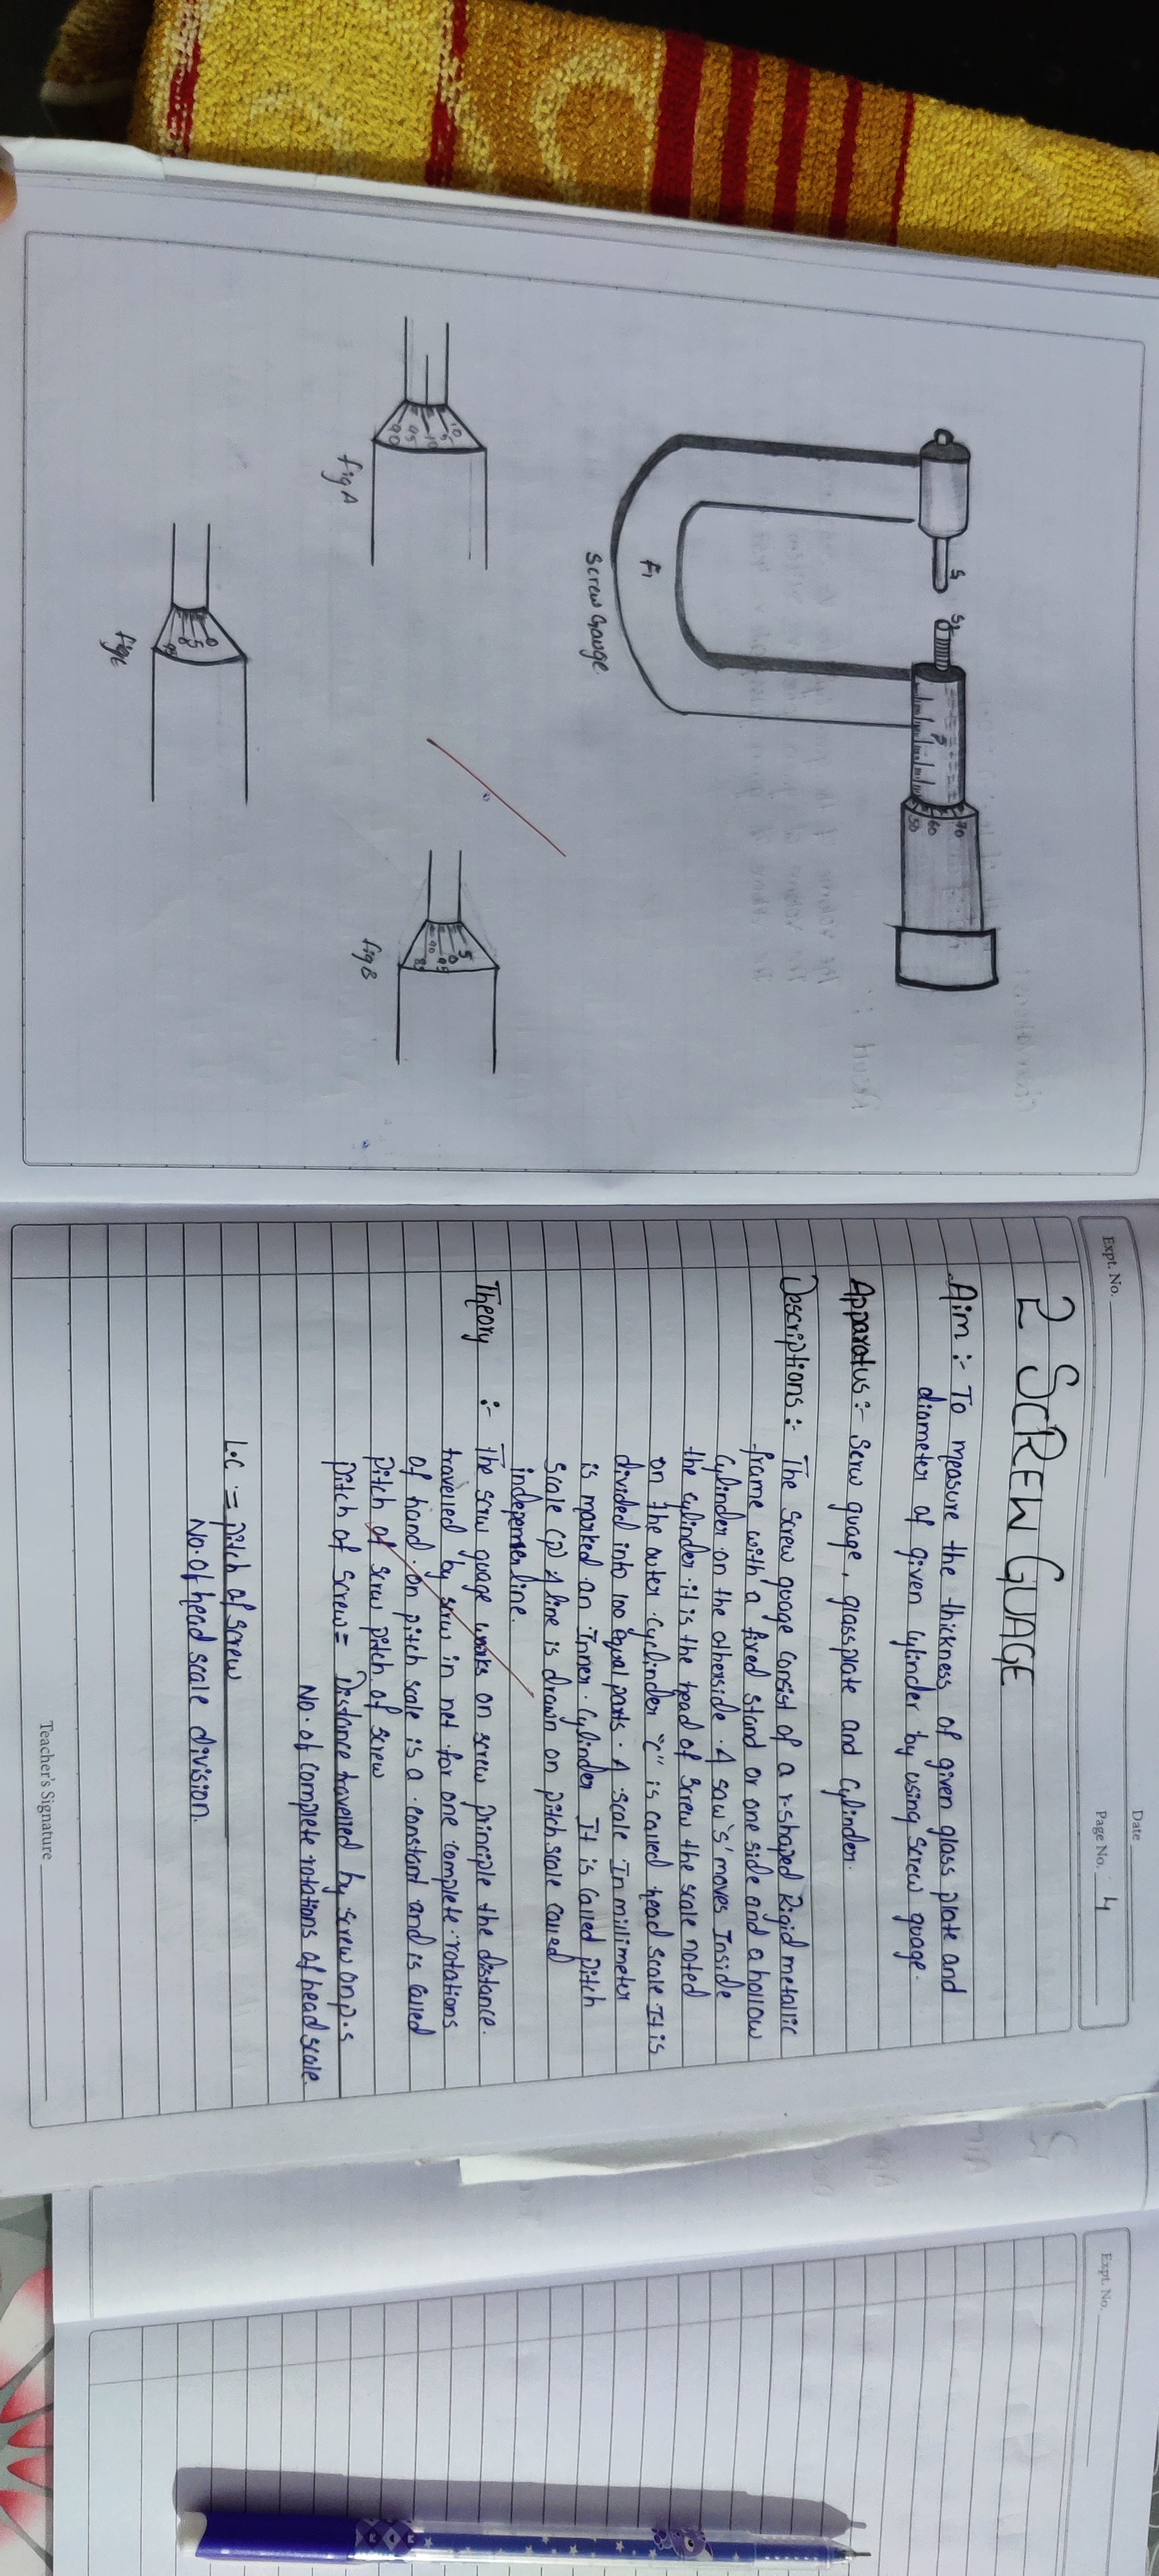 S1
S2
P
70
60
50
F1
Screw Gauge
10
5
10
95
90
fig A
5
0
95
90
fig B
0
5
fig C
Date
Expt. No.
Page No. 4
2 SCREW GUAGE
Aim :- To measure the thickness of given glass plate and
diameter of given cylinder by using screw guage.
Apparatus :- Scrw guage, glassplate and cylinder.
Descriptions :- The screw guage consist of a r-shaped Rigid metallic
frame with a fixed stand or one side and a hollow
cylinder on the otherside. A saw 's' moves Inside
the cylinder it is the head of screw the scale noted
on the outer cylinder "c" is called head scale It is
divided into 100 equal parts. A scale In millimeter
is marked an Inner cylinder It is called pitch
scale (p) A line is drawn on pitch scale called
independen line.
Theory :- The scrw guage works on screw principle the distance.
travelled by scrw in net for one complete rotations
of hand on pitch scale is a constant and is called
pitch of scrw pitch of screw
pitch of screw = Distance travelled by screw on p.s
No. of complete rotations of head scale.
L.C = pitch of screw
No. of head scale division.
Teacher's Signature
Expt. No.